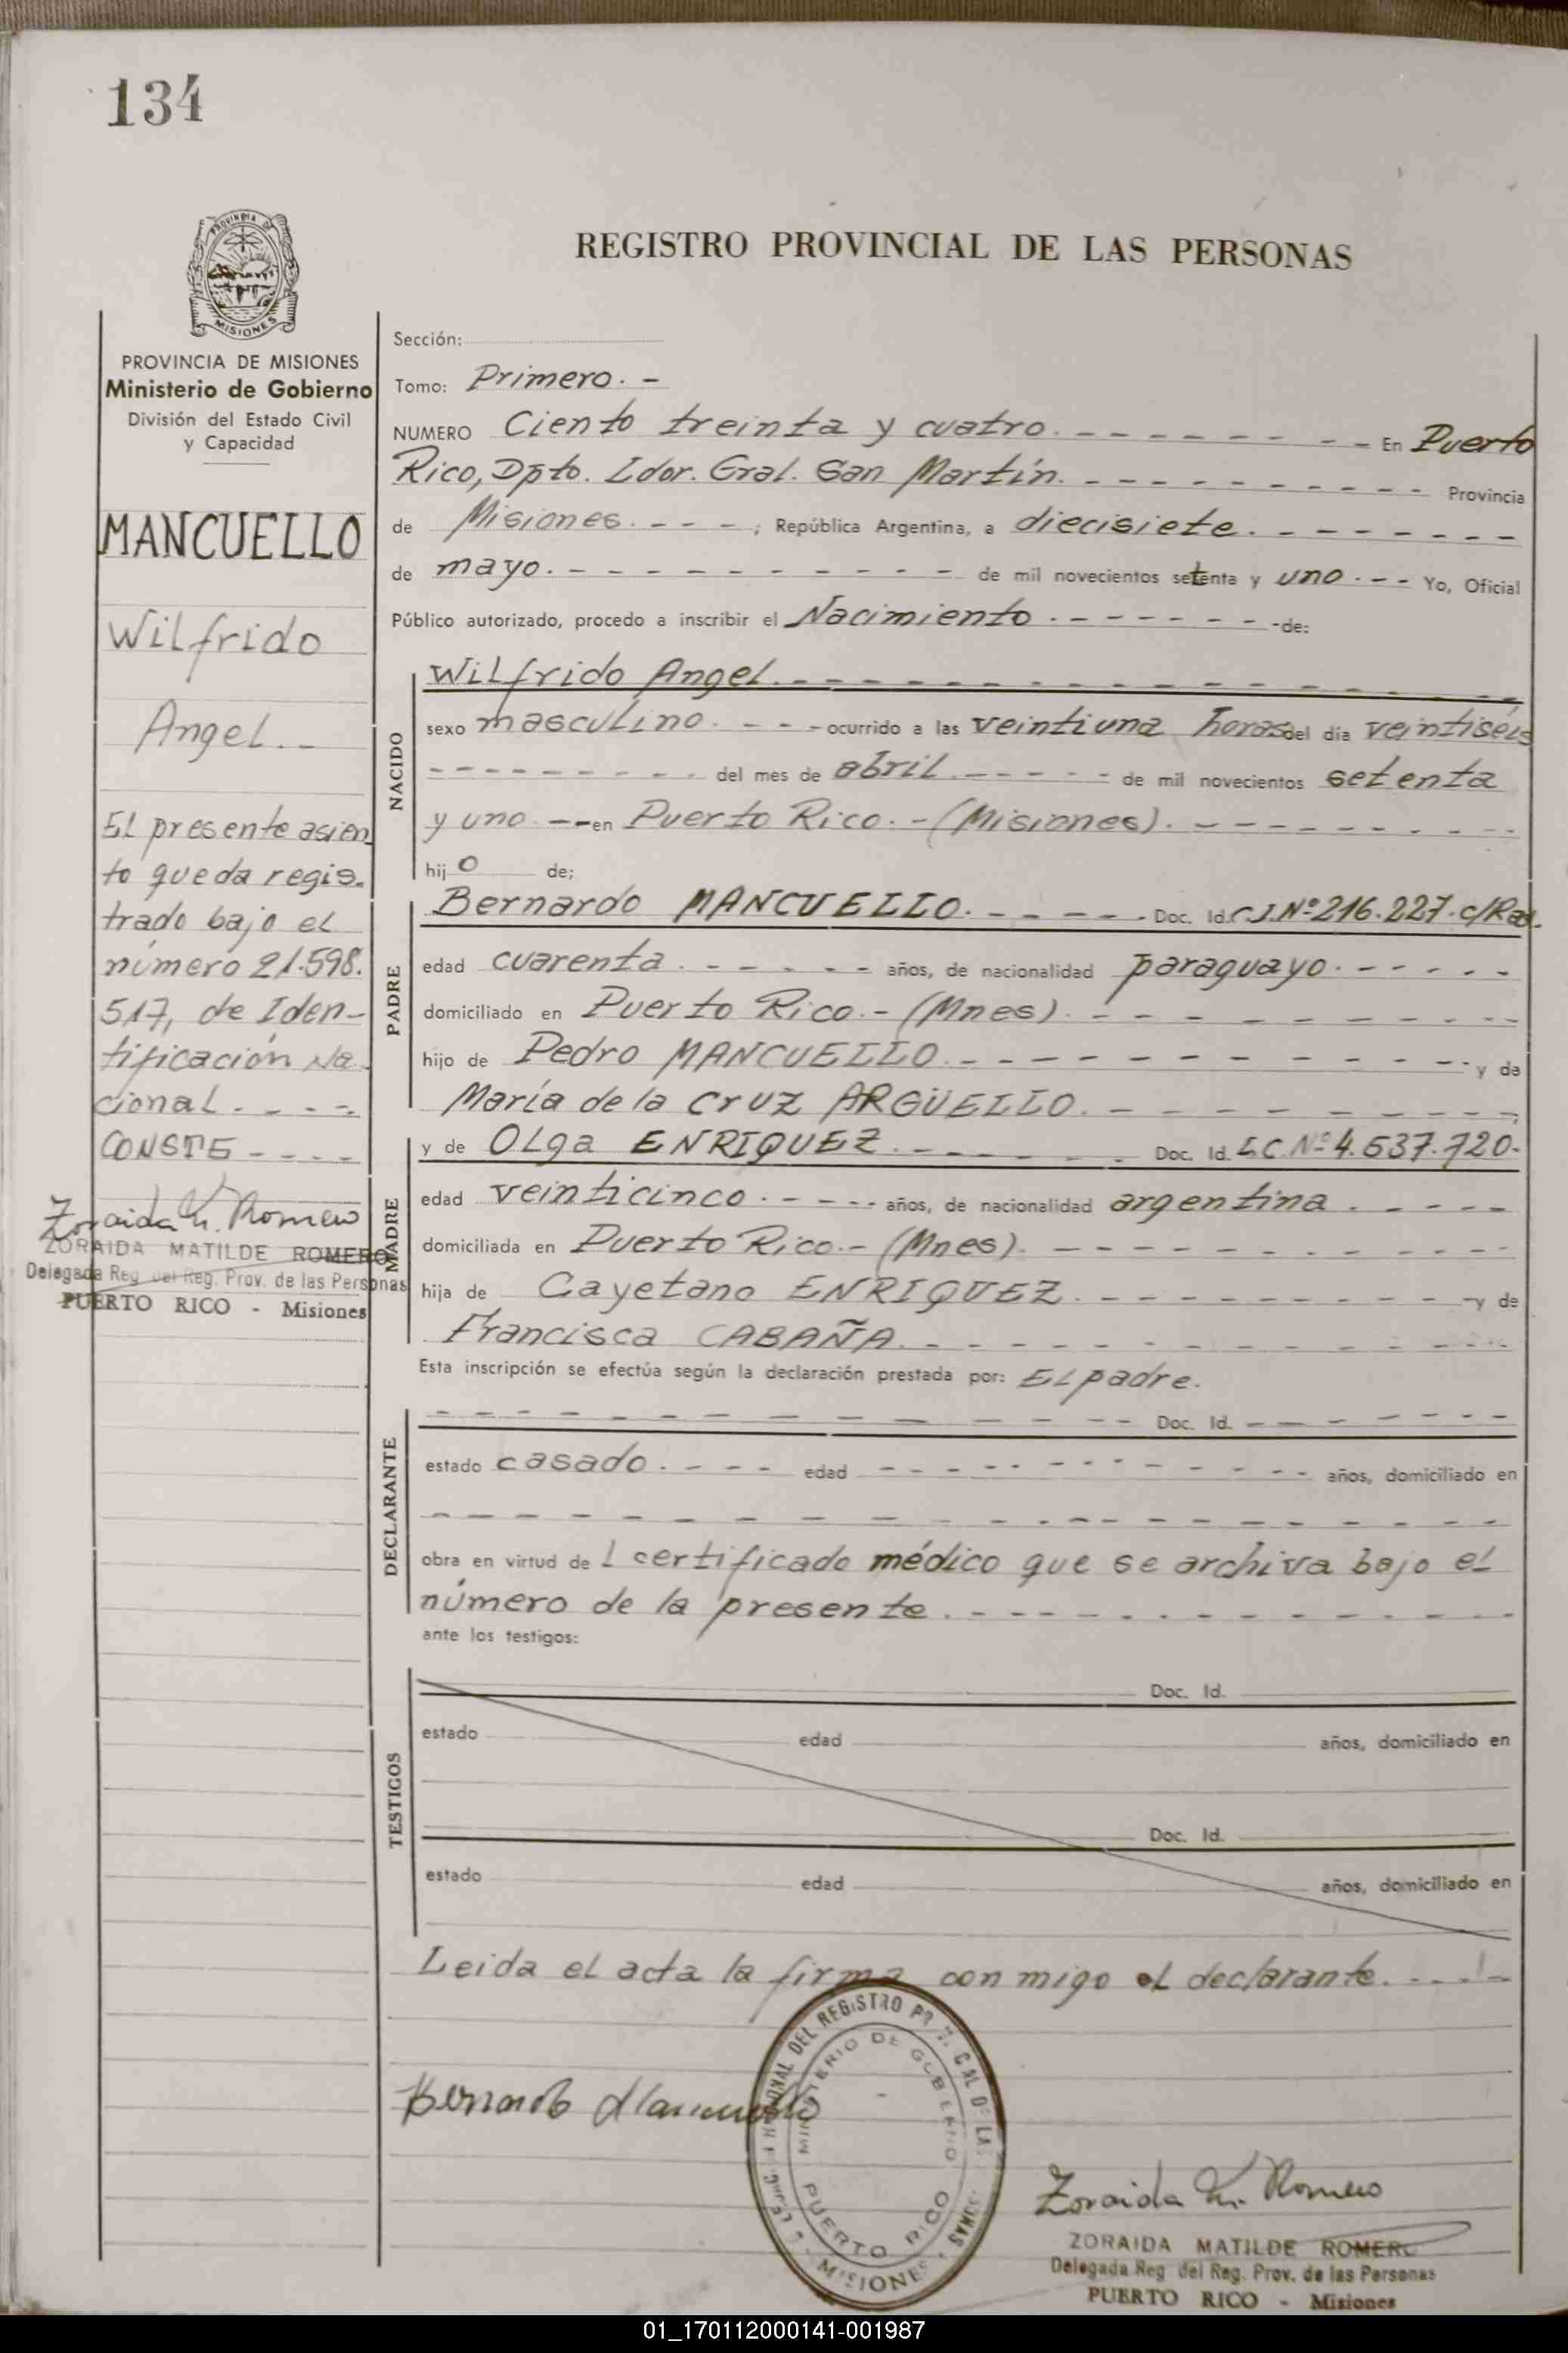 134
REGISTRO PROVINCIAL DE LAS PERSONAS
PROVINCIA DE
MISIONES
PROVINCIA DE MISIONES
Ministerio de Gobierno
División del Estado Civil
y Capacidad
MANCUELLO
Wilfrido
Angel.-
El presente asien
to queda regis-
trado bajo el
número 21.598.
517, de Iden-
tificación Na-
cional. - - - -
CONSTE - - - -
Zoraida M. Romero
ZORAIDA MATILDE ROMERO
Delegada Reg. del Reg. Prov. de las Personas
PUERTO RICO - Misiones
Sección:
Tomo: Primero. -
NUMERO Ciento treinta y cuatro. - - - - - - - - En Puerto
Rico, Dpto. Ldor. Gral. San Martín. - - - - - - - - - - - Provincia
de Misiones. - - - ; República Argentina, a diecisiete. - - - - - - -
de mayo. - - - - - - - - - - de mil novecientos setenta y uno. - - Yo, Oficial
Público autorizado, procedo a inscribir el Nacimiento. - - - - - - - de:
NACIDO
Wilfrido Angel. - - - - - - - - - - - -
sexo masculino. - - - ocurrido a las veintiuna horas del día veintiséis
- - - - - - - - - del mes de abril. - - - - - de mil novecientos setenta
y uno. -- en Puerto Rico. - (Misiones). - - - - - - - -
hijo de;
PADRE
Bernardo MANCUELLO. - - - - - Doc. Id. C.I.Nº216.227. c/Rad.
edad cuarenta. - - - - - años, de nacionalidad paraguayo. - - - - -
domiciliado en Puerto Rico. - (Mnes). - - - - - - - - - -
hijo de Pedro MANCUELLO. - - - - - - - - - - - y de
María de la Cruz ARGÜELLO. - - - - - - - - - ;
MADRE
y de Olga ENRIQUEZ. - - - - - - Doc. Id. L.C.Nº4.637.720.-
edad veinticinco. - - - - años, de nacionalidad argentina. - - - -
domiciliada en Puerto Rico. - (Mnes). - - - - - - - - - -
hija de Cayetano ENRIQUEZ. - - - - - - - - - y de
Francisca CABAÑA. - - - - - - - - - - -
Esta inscripción se efectúa según la declaración prestada por: El padre.
DECLARANTE
- - - - - - - - - - - - Doc. Id. - - - - - - -
estado casado. - - - - edad - - - - - - - - - - - años, domiciliado en
- - - - - - - - - - - - - - - - - -
obra en virtud de l certificado médico que se archiva bajo el
número de la presente. - - - - - - - - - - - -
ante los testigos:
TESTIGOS
Doc. Id.
estado edad años, domiciliado en
Doc. Id.
estado edad años, domiciliado en
Leida el acta la firma conmigo el declarante. - - - -
Bernardo Mancuello
DEL REGISTRO
MINISTERIO DE GOBIERNO
PUERTO RICO
MISIONES
Zoraida M. Romero
ZORAIDA MATILDE ROMERO
Delegada Reg. del Reg. Prov. de las Personas
PUERTO RICO - Misiones
01_170112000141-001987